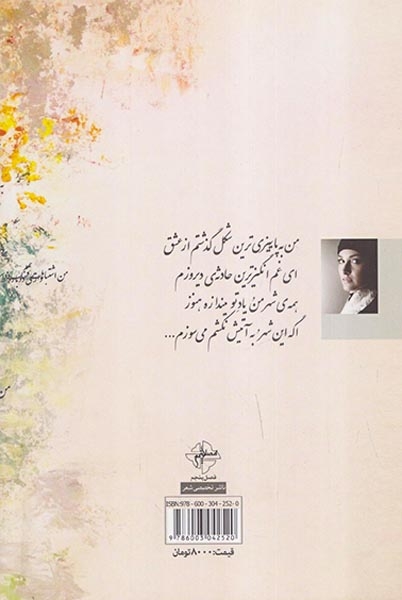 من به پاییزی ترین شکل گذشتم از عشق
ای غم انگیزترین حادثه‌ی دیروزم
همه‌ی شهر من یاد تو میندازه هنوز
اگه این شهرُ به آتیش نکشم می سوزم...
من اشتباهاً
من
فصل پنجم
ناشر تخصصی شعر
ISBN:978-600-304-252-0
9 786003 042520
قیمت: ۸۰۰۰ تومان